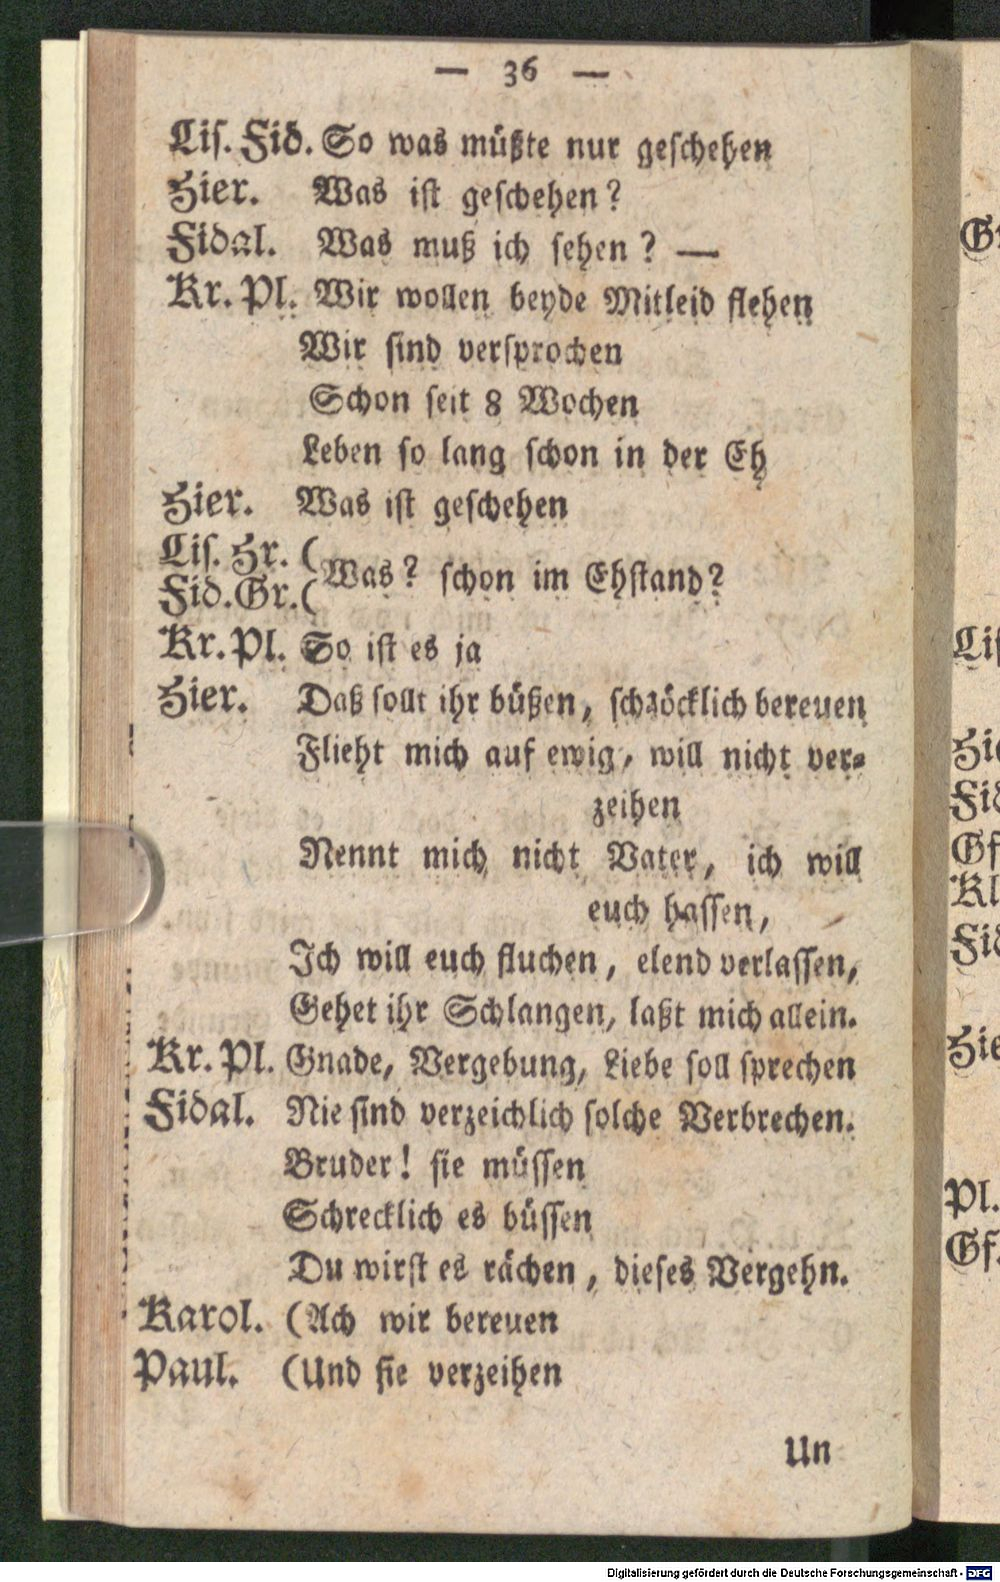 — 36 —
Lis. Fid. So was müßte nur geschehen
Hier. Was ist geschehen?
Fidal. Was muß ich sehen? —
Kr. Pl. Wir wollen beyde Mitleid flehen
Wir sind versprochen
Schon seit 8 Wochen
Leben so lang schon in der Eh
Hier. Was ist geschehen
Lis. Hr. (
Fid. Gr. ( Was? schon im Ehstand?
Kr. Pl. So ist es ja
Hier. Daß sollt ihr büßen, schröcklich bereuen
Flieht mich auf ewig, will nicht ver-
zeihen
Nennt mich nicht Vater, ich will
euch hassen,
Ich will euch fluchen, elend verlassen,
Gehet ihr Schlangen, laßt mich allein.
Kr. Pl. Gnade, Vergebung, Liebe soll sprechen
Fidal. Nie sind verzeichlich solche Verbrechen.
Bruder! sie müssen
Schrecklich es büssen
Du wirst es rächen, dieses Vergehn.
Karol. (Ach wir bereuen
Paul. (Und sie verzeihen
Un
Lis
Hie
Fid
Gf
Kl
Fid
Hie
Pl.
Gf.
Digitalisierung gefördert durch die Deutsche Forschungsgemeinschaft - DFG